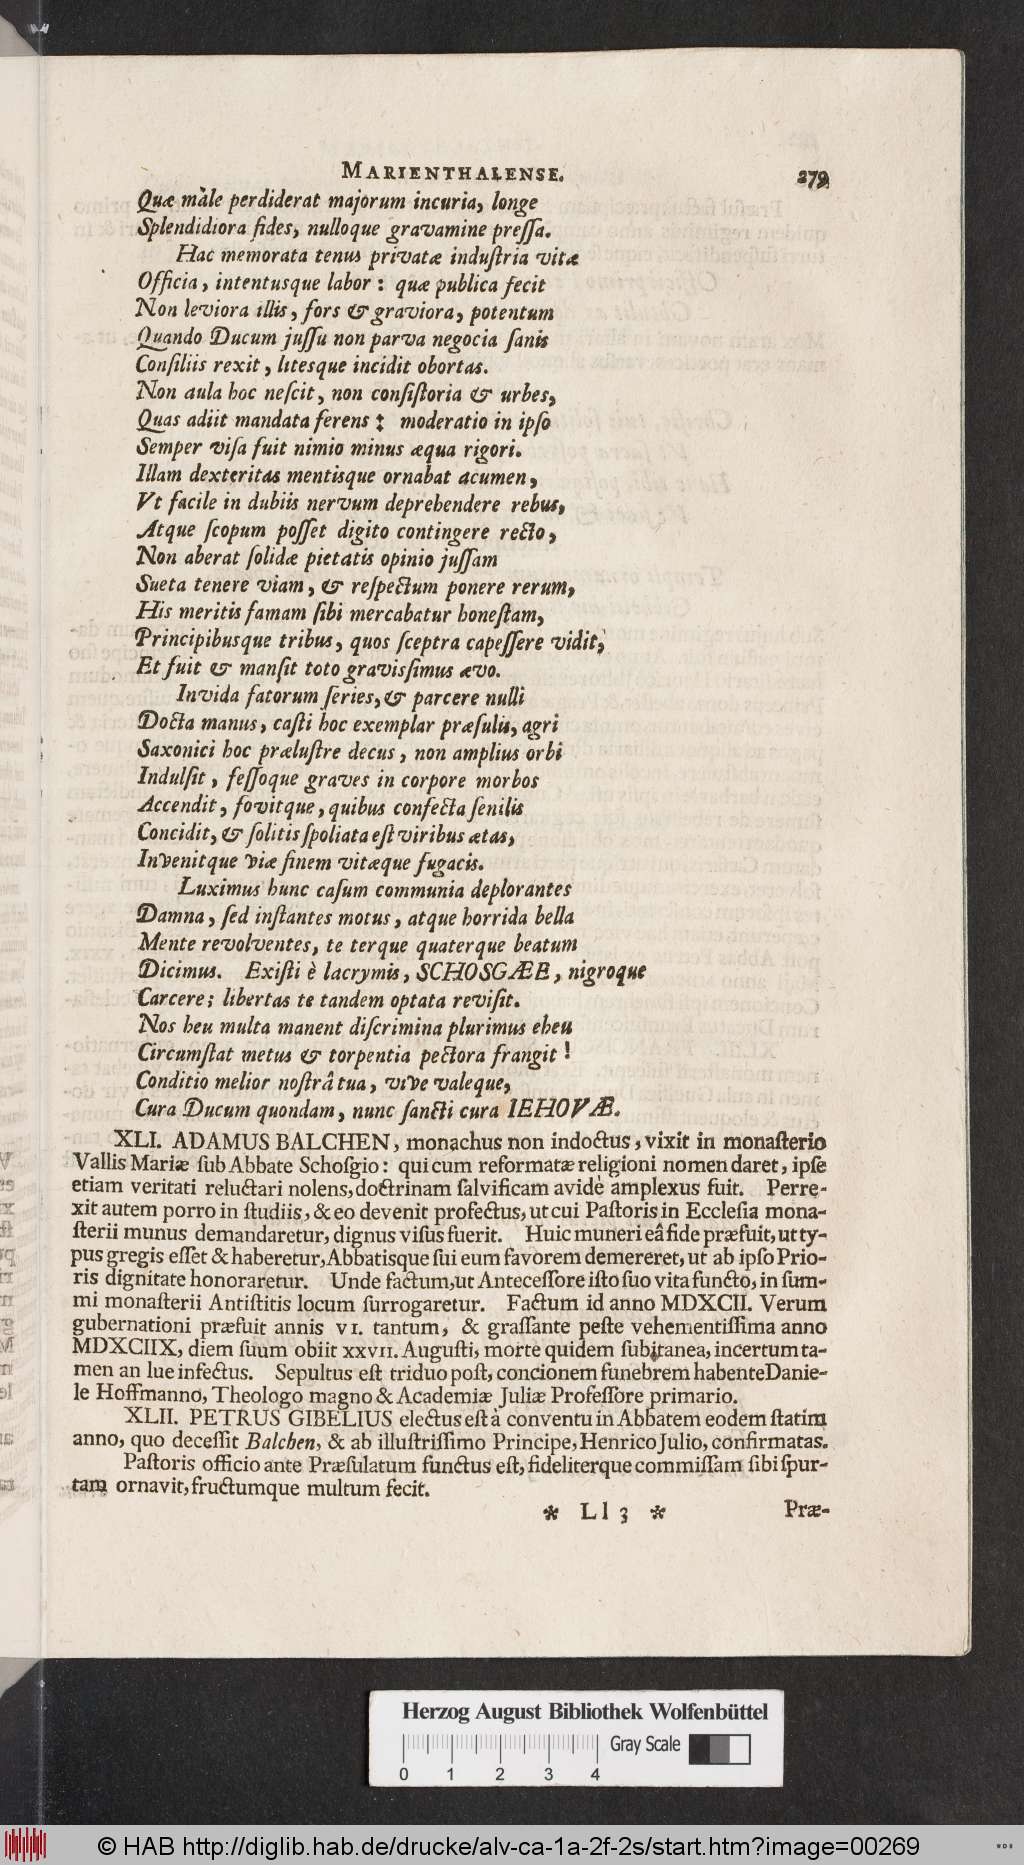 MARIENTHALENSE. 279
Quæ màle perdiderat majorum incuria, longe
Splendidiora fides, nulloque gravamine preſſa.
Hac memorata tenus privatæ induſtria vitæ
Officia, intentusque labor: quæ publica fecit
Non leviora illis, fors & graviora, potentum
Quando Ducum juſſu non parva negocia ſanis
Conſiliis rexit, litesque incidit obortas.
Non aula hoc neſcit, non conſiſtoria & urbes,
Quas adiit mandata ferens: moderatio in ipſo
Semper viſa fuit nimio minus æqua rigori.
Illam dexteritas mentisque ornabat acumen,
Vt facile in dubiis nervum deprehendere rebus,
Atque ſcopum poſſet digito contingere recto,
Non aberat ſolidæ pietatis opinio juſſam
Sueta tenere viam, & reſpectum ponere rerum,
His meritis famam ſibi mercabatur honeſtam,
Principibusque tribus, quos ſceptra capeſſere vidit,
Et fuit & manſit toto graviſsimus ævo.
Invida fatorum ſeries, & parcere nulli
Docta manus, caſti hoc exemplar præſulis, agri
Saxonici hoc præluſtre decus, non amplius orbi
Indulſit, feſſoque graves in corpore morbos
Accendit, fovitque, quibus confecta ſenilis
Concidit, & ſolitis ſpoliata eſt viribus ætas,
Invenitque viæ finem vitæque fugacis.
Luximus hunc caſum communia deplorantes
Damna, ſed inſtantes motus, atque horrida bella
Mente revolventes, te terque quaterque beatum
Dicimus. Exiſti è lacrymis, SCHOSGÆE, nigroque
Carcere; libertas te tandem optata reviſit.
Nos heu multa manent diſcrimina plurimus eheu
Circumſtat metus & torpentia pectora frangit!
Conditio melior noſtrâ tua, vive valeque,
Cura Ducum quondam, nunc ſancti cura IEHOVÆ.
XLI. ADAMUS BALCHEN, monachus non indoctus, vixit in monaſterio
Vallis Mariæ ſub Abbate Schoſgio: qui cum reformatæ religioni nomen daret, ipſe
etiam veritati reluctari nolens, doctrinam ſalvificam avidè amplexus fuit. Perre-
xit autem porro in ſtudiis, & eo devenit profectus, ut cui Paſtoris in Eccleſia mona-
ſterii munus demandaretur, dignus viſus fuerit. Huic muneri eâ fide præfuit, ut ty-
pus gregis eſſet & haberetur, Abbatisque ſui eum favorem demereret, ut ab ipſo Prio-
ris dignitate honoraretur. Unde factum, ut Anteceſſore iſto ſuo vita functo, in ſum-
mi monaſterii Antiſtitis locum ſurrogaretur. Factum id anno MDXCII. Verum
gubernationi præfuit annis VI. tantum, & graſſante peſte vehementiſſima anno
MDXCIIX, diem ſuum obiit XXVII. Auguſti, morte quidem ſubitanea, incertum ta-
men an lue infectus. Sepultus eſt triduo poſt, concionem funebrem habente Danie-
le Hoffmanno, Theologo magno & Academiæ Juliæ Profeſſore primario.
XLII. PETRUS GIBELIUS electus eſt à conventu in Abbatem eodem ſtatim
anno, quo deceſſit Balchen, & ab illuſtriſſimo Principe, Henrico Julio, confirmatas.
Paſtoris officio ante Præſulatum functus eſt, fideliterque commiſſam ſibi ſpur-
tam ornavit, fructumque multum fecit.
* Ll 3 * Præ-
Herzog August Bibliothek Wolfenbüttel
Gray Scale
0 1 2 3 4
© HAB http://diglib.hab.de/drucke/alv-ca-1a-2f-2s/start.htm?image=00269